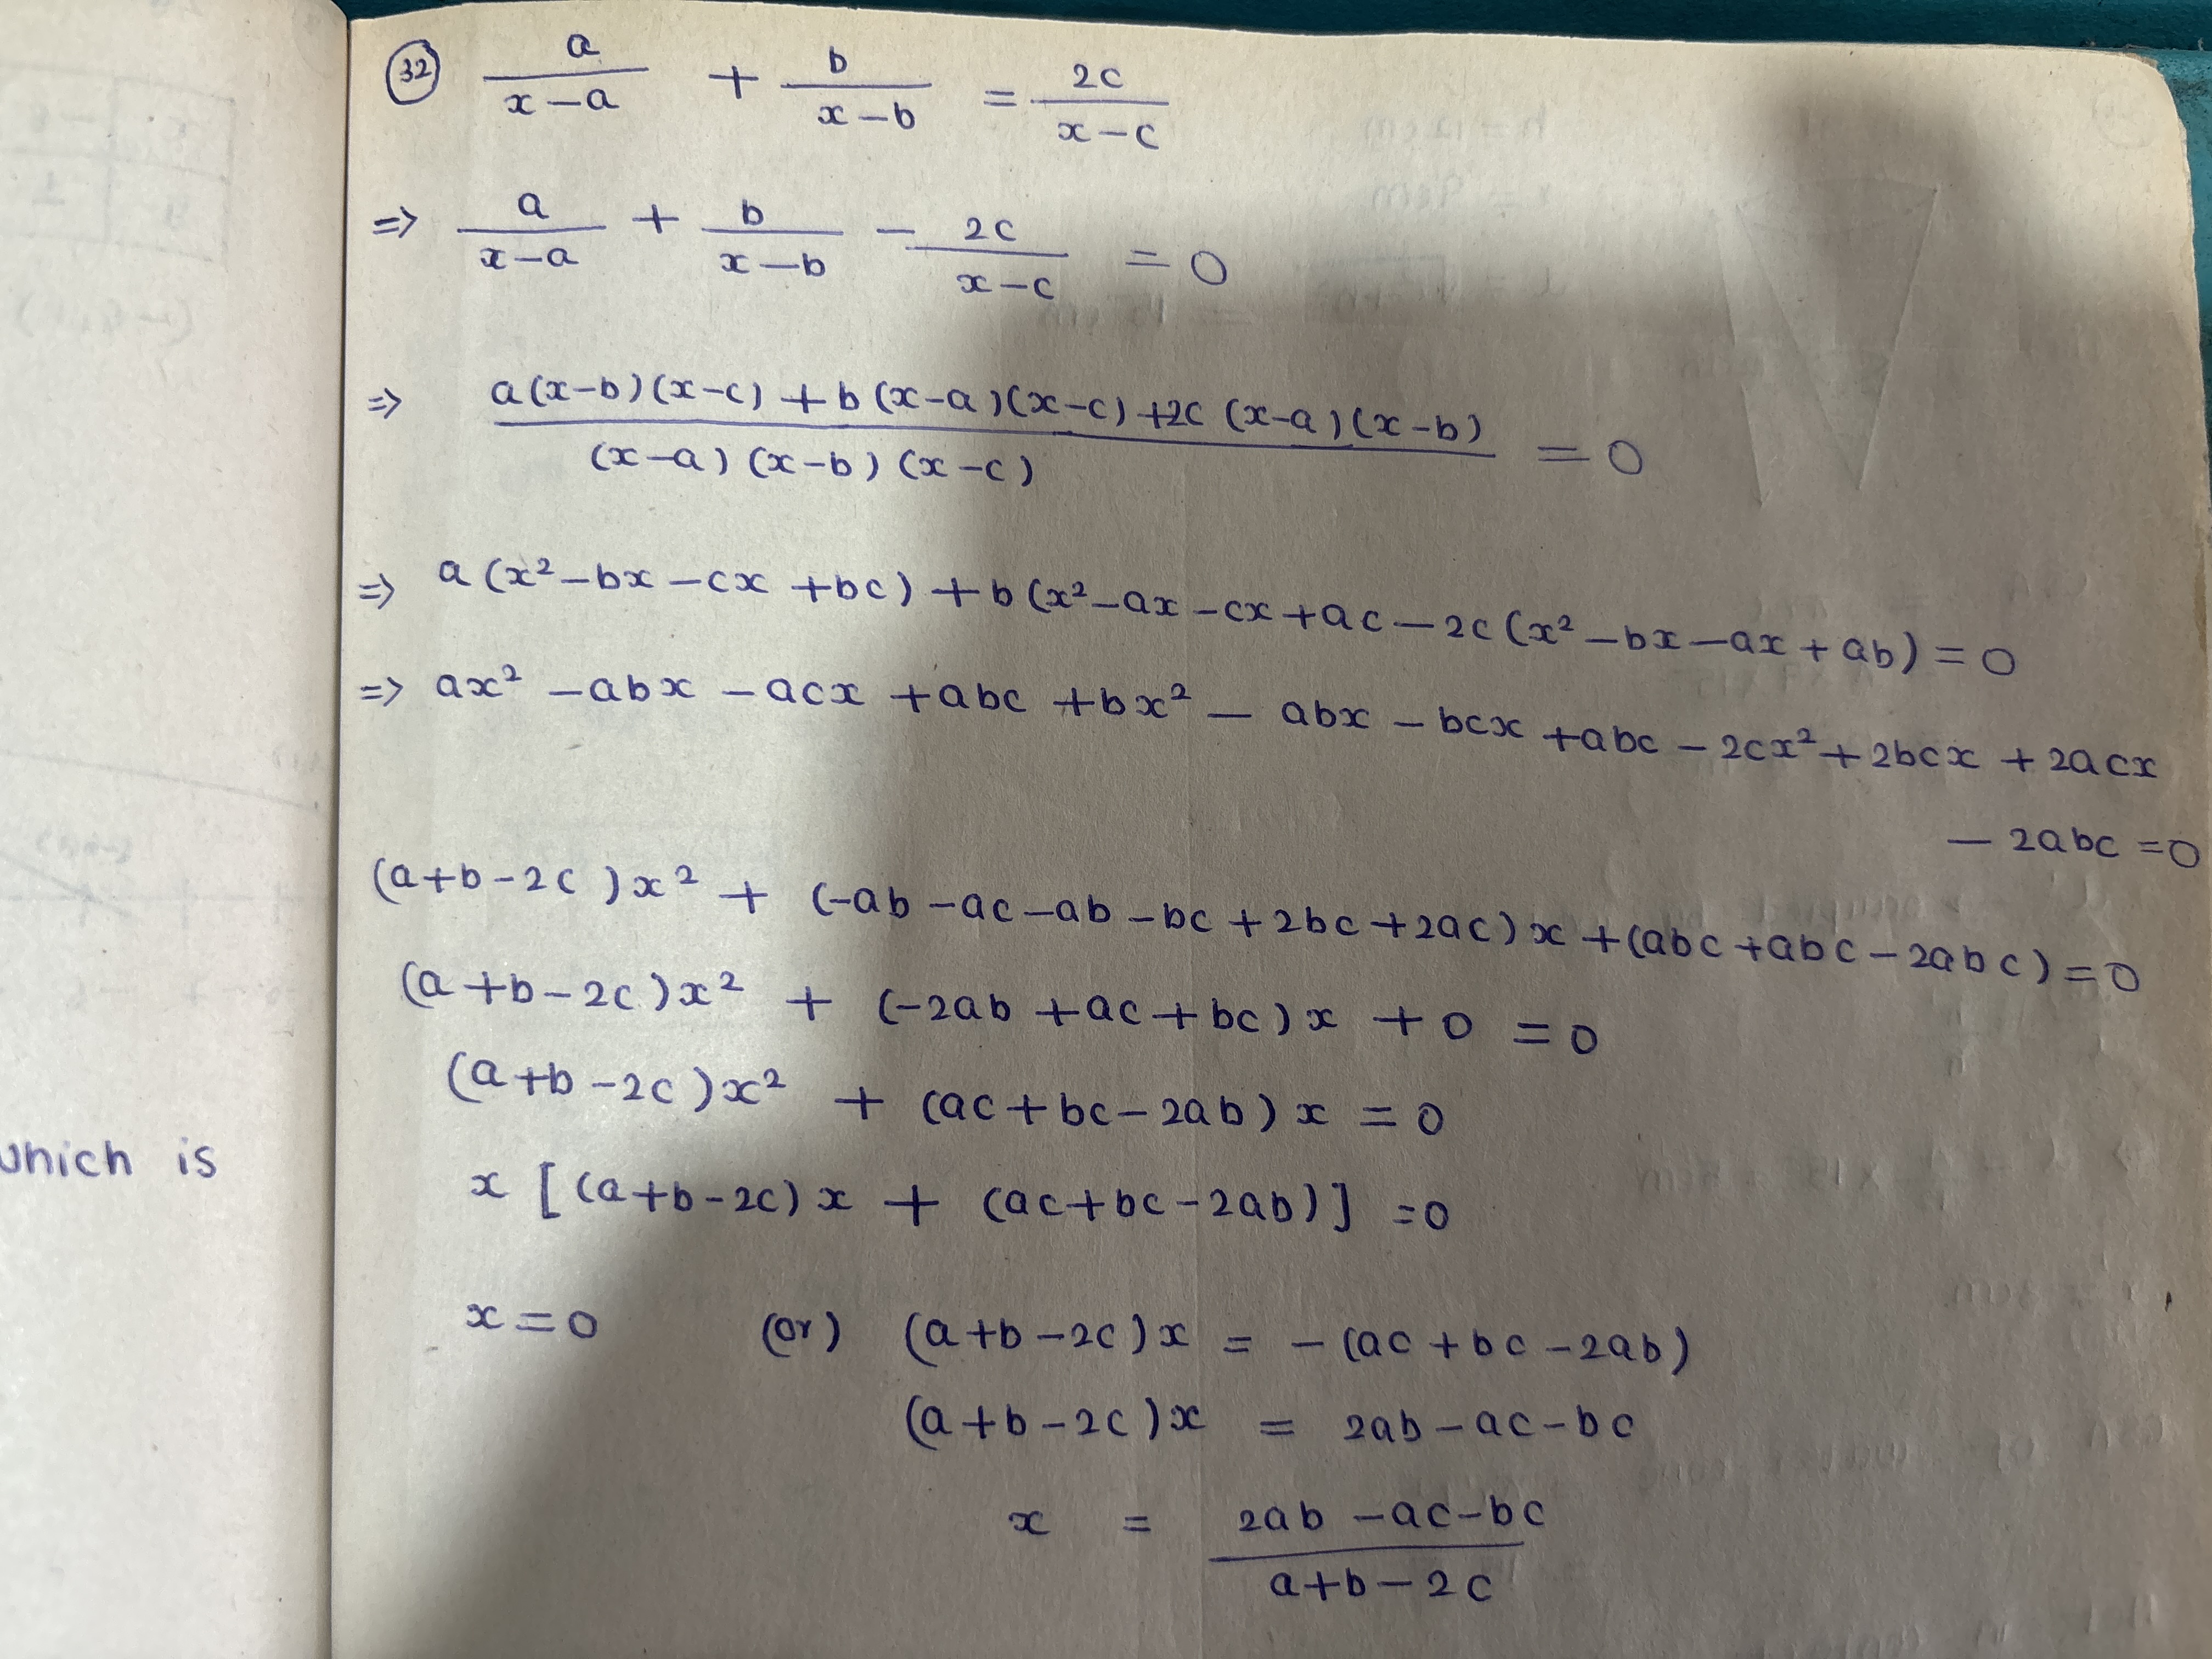 32 a/(x-a) + b/(x-b) = 2c/(x-c)
=> a/(x-a) + b/(x-b) - 2c/(x-c) = 0
=> (a(x-b)(x-c) + b(x-a)(x-c) + 2c(x-a)(x-b))/((x-a)(x-b)(x-c)) = 0
=> a(x² - bx - cx + bc) + b(x² - ax - cx + ac - 2c(x² - bx - ax + ab) = 0
=> ax² - abx - acx + abc + bx² - abx - bcx + abc - 2cx² + 2bcx + 2acx
- 2abc = 0
(a+b-2c)x² + (-ab - ac - ab - bc + 2bc + 2ac)x + (abc + abc - 2abc) = 0
(a+b-2c)x² + (-2ab + ac + bc)x + 0 = 0
(a+b-2c)x² + (ac + bc - 2ab)x = 0
which is
x[(a+b-2c)x + (ac+bc-2ab)] = 0
x = 0 (or) (a+b-2c)x = -(ac + bc - 2ab)
(a+b-2c)x = 2ab - ac - bc
x = (2ab - ac - bc)/(a+b-2c)